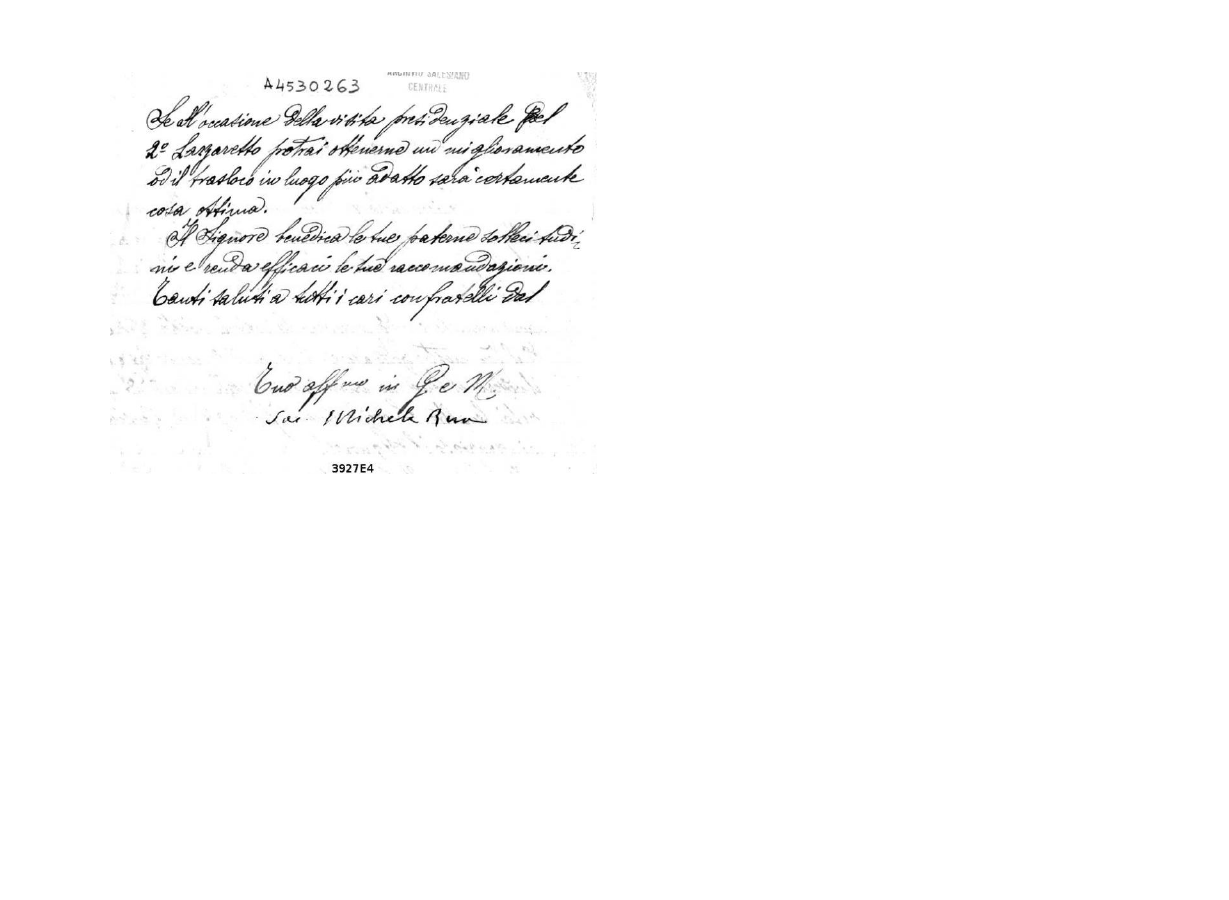 A4530263
ARCHIVIO SALESIANO
CENTRALE
Se all'occasione della visita presidenziale pel
2º Lazzaretto potrai ottenerne un miglioramento
od il trasloco in luogo più adatto sarà certamente
cosa ottima.
Il Signore benedica le tue paterne sollecitudi-
ni e renda efficaci le tue raccomandazioni.
Tanti saluti a tutti i cari confratelli dal
Tuo aff mo in G. e M.
Sac. Michele Rua
3927E4